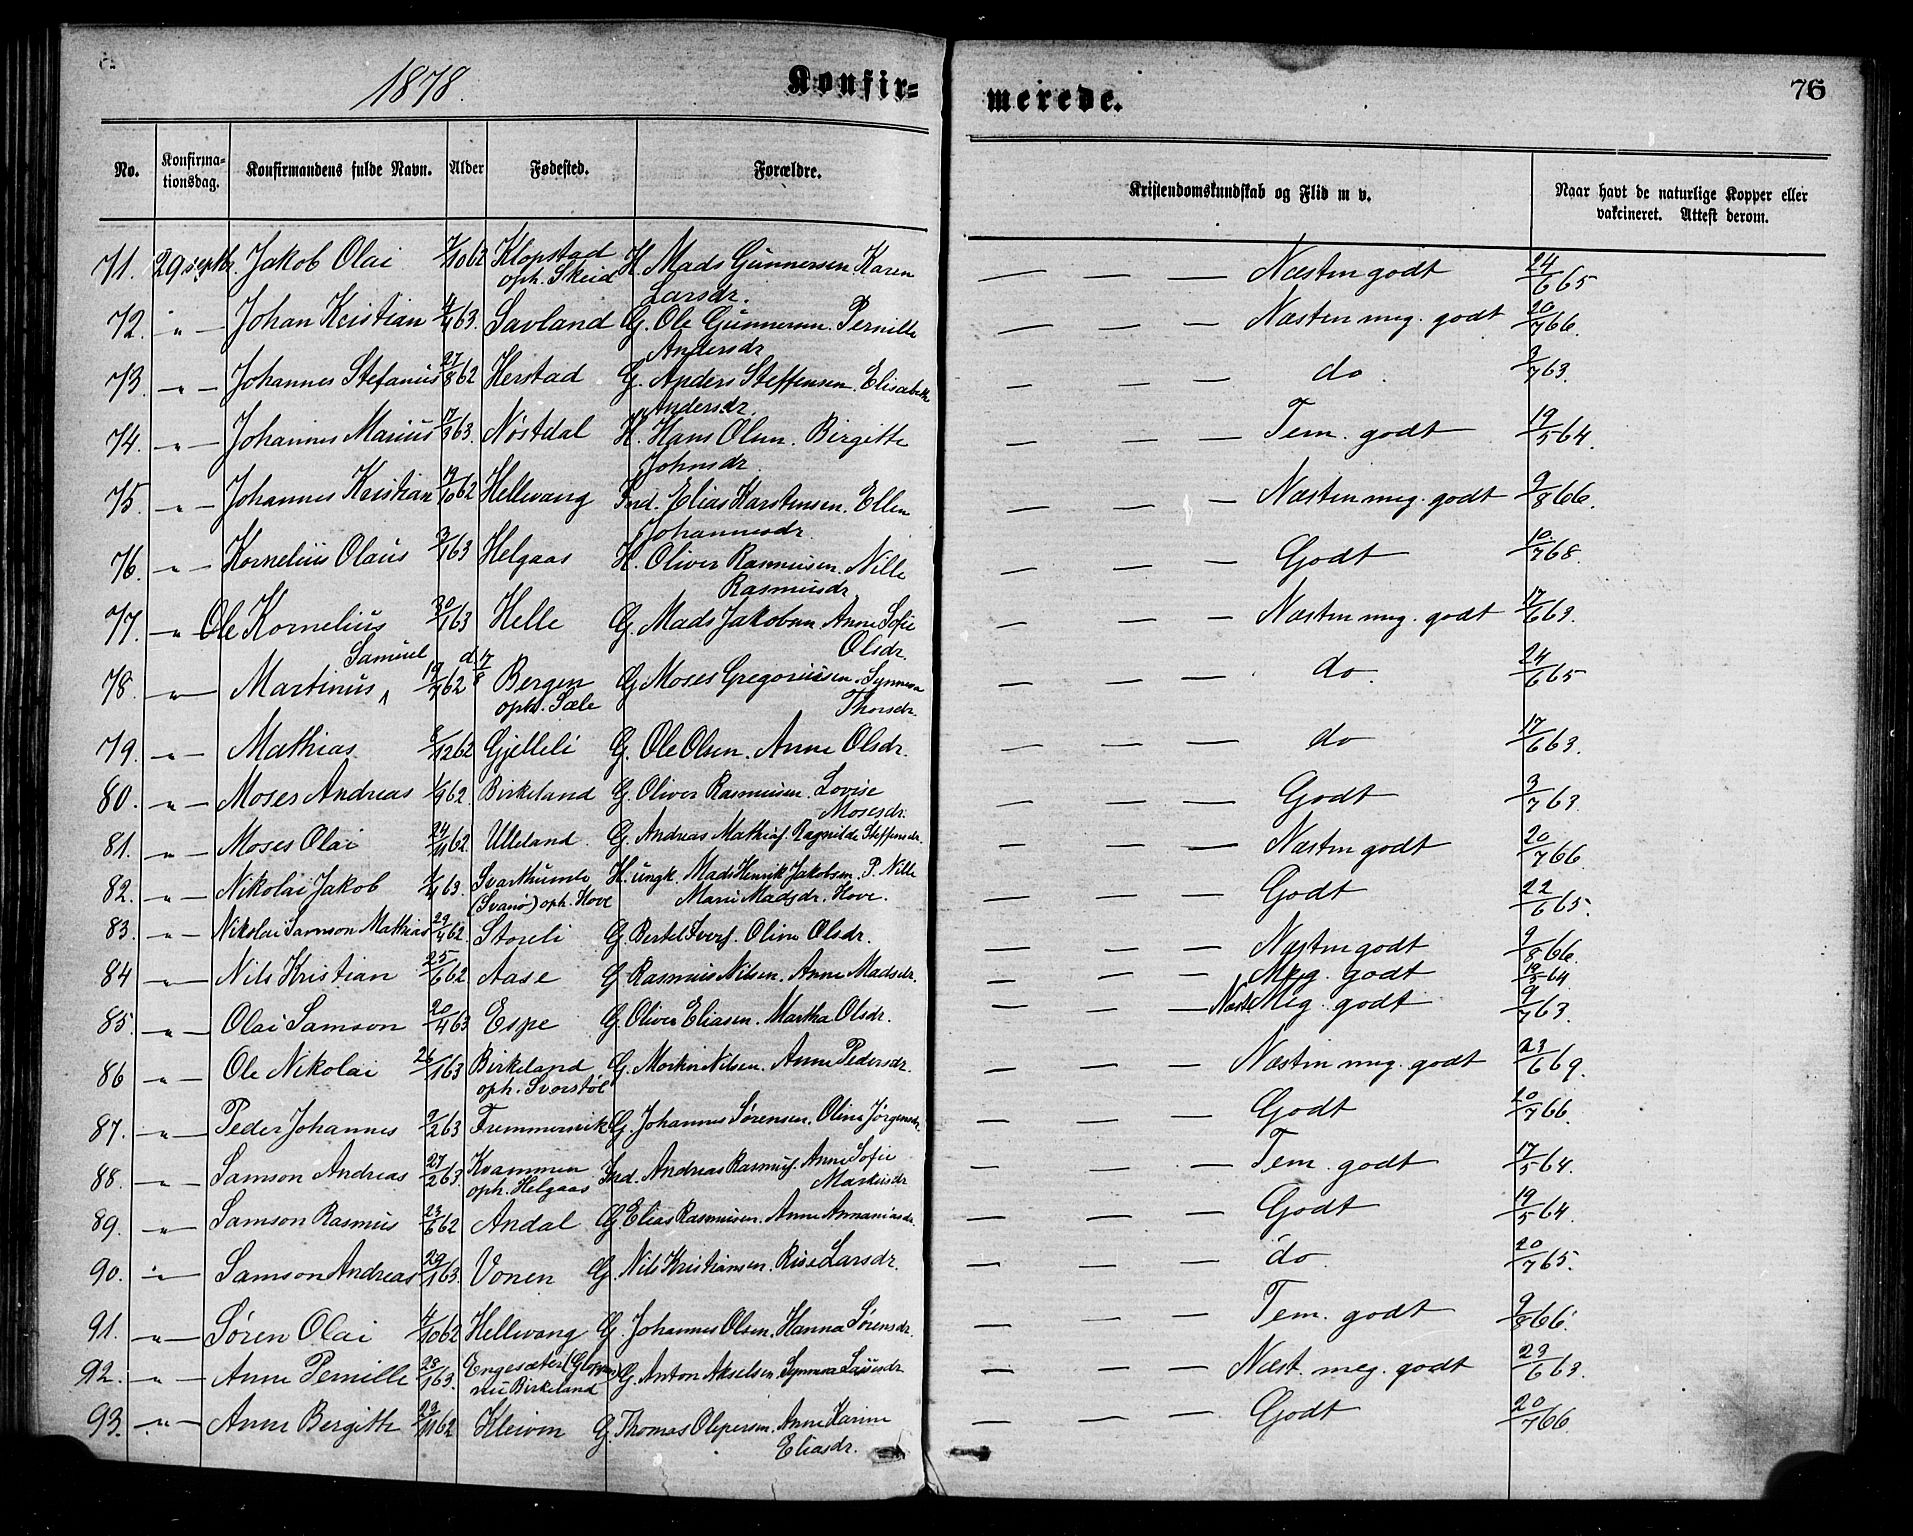 1878. Konfir= merede. 76
No. Konfirma-tionsdag. Konfirmandens fulde Navn. Alder Fødested. Forældre. Kristendomskundskab og Flid m v. Naar havt de naturlige Kopper eller vakcineret. Attest derom.
71. 29 septbr. Jakob Olai 7/10 62 Klopstad H. Mads Gunnersen Karen — — — Næsten godt 24/6 65
oph. Skeid Larsdr.
72. " — Johan Kristian 4/4 63. Savland G. Ole Gunnersen. Pernille — — — Næsten meg. godt 20/7 66.
Andersdr
73. " — Johannes Stefanus 27/8 62 Herstad G. Anders Steffensen. Elisabeth — — — do. 3/7 63.
Andersdr.
74. " — Johannes Marius 17/3 63. Nøstdal H. Hans Olsen. Birgitte — — — Tem. godt 19/5 64.
Johnsdr.
75. " — Johannes Kristian 19/10 62 Hellevang Ind. Elias Karstensen. Ellen — — — Næsten meg. godt 9/8 66.
Johannesdr.
76. " — Kornelius Olaus 3/1 63 Helgaas H. Oliver Rasmusen. Nille — — — Godt 10/7 68.
Rasmusdr
77. " Ole Kornelius 30/1 63 Helle G. Mads Jakobsen Anne Sofie — — — Næsten meg. godt 17/6 63.
Olsdr.
Samuel d 17/8
78. " — Martinus 19/7 62 Bergen G Moses Gregoriusen. Synneva — — — do. 24/6 65
oph. Sæle Thorsdr.
79. " — Mathias 8/12 62 Gjelleli G. Ole Olsen. Anne Olsdr. — — — do 17/6 63.
80. " — Moses Andreas 1/9 62 Birkeland G. Oliver Rasmusen. Lovise — — — Godt 3/7 63
Mosesdr.
81. " — Moses Olai 24/11 62 Ulleland. G. Andreas Mathias. Ragnilde Steffensdr. — — — Næsten godt 20/7 66.
82. " — Nikolai Jakob 7/4 63. Svarthumle H. ungk. Mads Henrik Jakobsen. P. Nille — — — Godt 22/6 65.
(Svanø) oph. Hove Marie Madsdr. Hove.
83. " — Nikolai Samson Mathias 29/4 62. Storeli G. Bertel Ivers. Oline Olsdr. — — — Næsten godt 9/8 66.
84 " — Nils Kristian 25/6 62 Aase G Rasmus Nilsen. Anne Madsdr. — — — Meg. godt 19/5 64
85. " — Olai Samson 20/4 63 Espe G. Oliver Eliasen. Martha Olsdr. — — — Næst. Meg. godt 9/7 63.
86 " — Ole Nikolai 26/1 63 Birkeland G. Morten Nilsen. Anne Pedersdr. — — — Næsten meg. godt 23/6 69.
oph. Svorstøl
87. " — Peder Johannes 2/2 63 Fremmersvik G. Johannes Sørensen. Olina Jørgensdr. — — — Godt 20/7 66.
88. " — Samson Andreas 27/2 63. Kvammen Ind. Andreas Rasmus. Anne Sofie — — — Tem. godt 17/5 64.
oph. Helgaas Markusdr
89. " — Samson Rasmus 23/6 62 Andal G Elias Rasmusen. Anne Ananiasdr. — — — Godt 19/5 64.
90. " — Samson Andreas 29/1 63. Vonen G. Nils Kristiansen. Rise Larsdr. — — — do. 20/7 65.
91. " — Søren Olai 4/10 62 Hellevang G. Johannes Olsen. Hanna Sørensdr. — — — Tem. godt 9/8 66.
92. " — Anne Pernille 23/1 63. Engesæter (Gloppen) G. Anton Akselsen. Synneva Larsdr — — — Næst. meg. godt 23/6 63.
nu Birkeland
93. " — Anne Bergitte 23/11 62 Kleiven G. Thomas Olepersen. Anne Karine — — — Godt 20/7 66
Eliasdr.